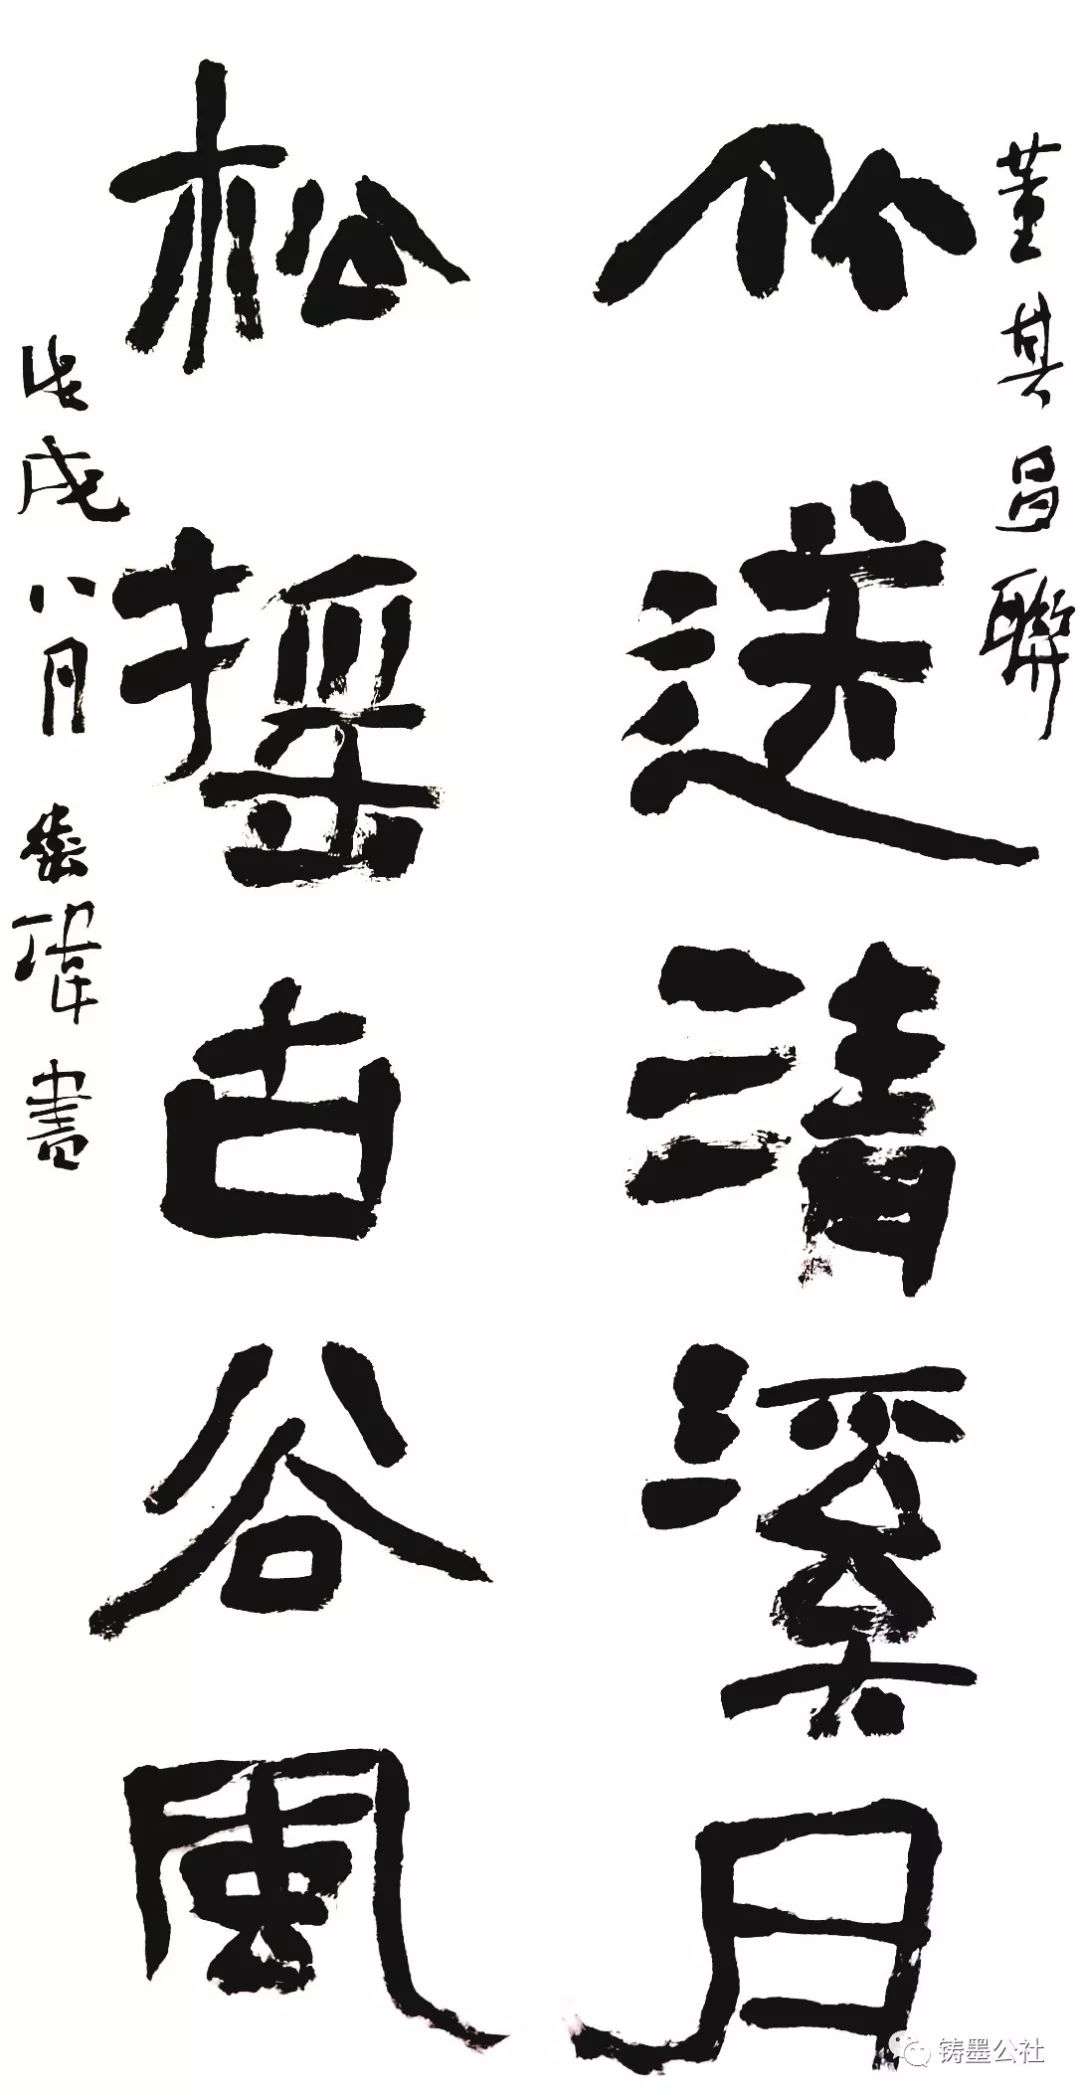 董其昌聯
竹送清溪月
松搖古谷風
戊戌八月瑋書
铸墨公社